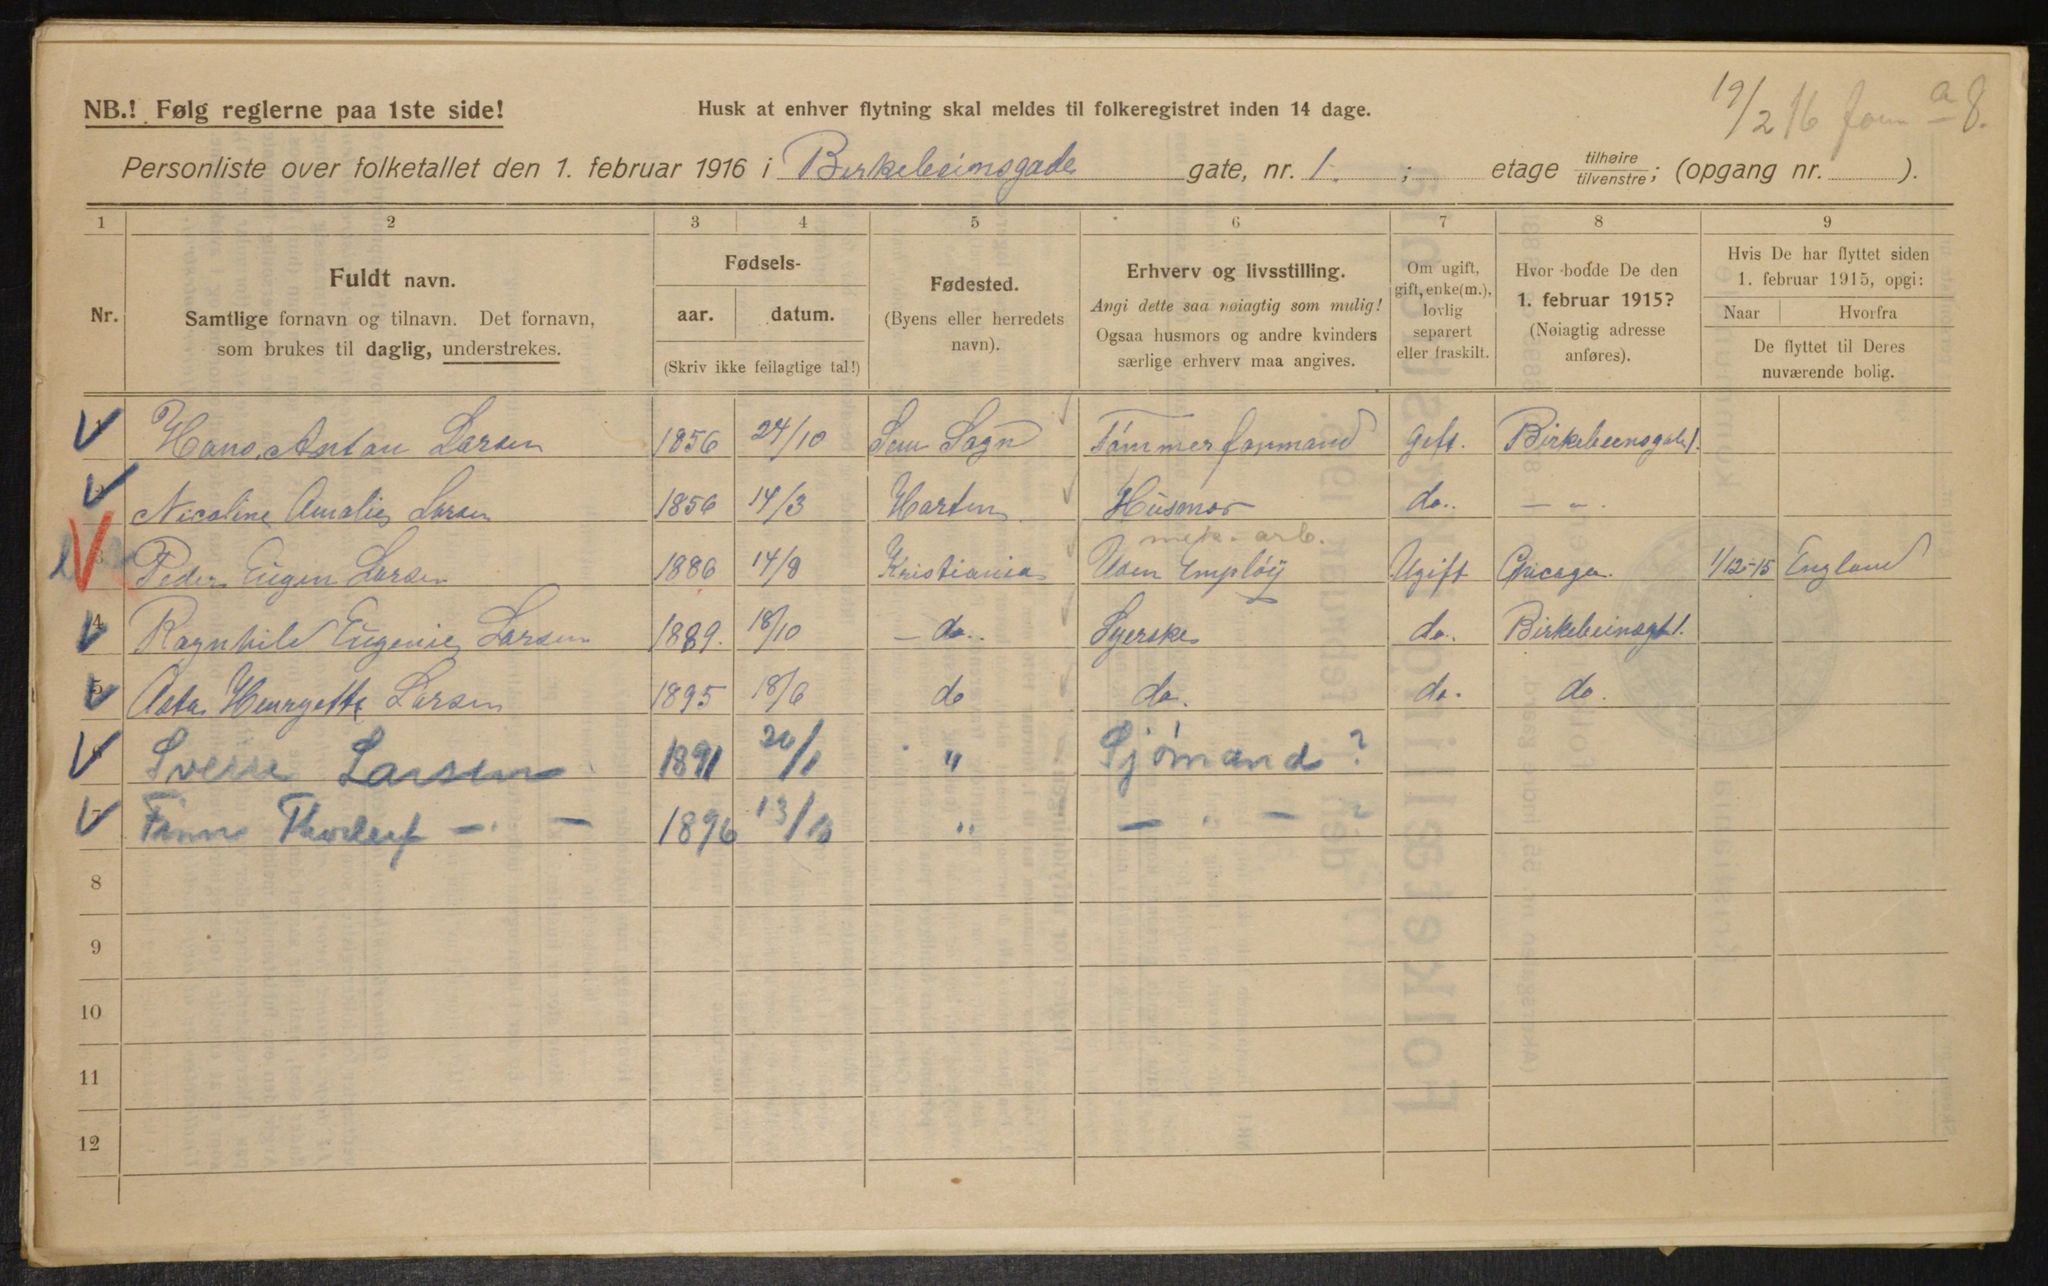 NB.! Følg reglerne paa 1ste side!
Husk at enhver flytning skal meldes til folkeregistret inden 14 dage.
19/2 16
Personliste over folketallet den 1. februar 1916 i Birkebeinsgade gate, nr. 1. ; etage tilhøire tilvenstre; (opgang nr. ).
1 2 3 4 5 6 7 8 9
Nr.
Fuldt navn.
Samtlige fornavn og tilnavn. Det fornavn,
som brukes til daglig, understrekes.
Fødsels-
aar. datum.
(Skriv ikke feilagtige tal!)
Fødested.
(Byens eller herredets
navn).
Erhverv og livsstilling.
Angi dette saa nøiagtig som mulig!
Ogsaa husmors og andre kvinders
særlige erhverv maa angives.
Om ugift,
gift, enke(m.),
lovlig
separert
eller fraskilt.
Hvor bodde De den
1. februar 1915?
(Nøiagtig adresse
anføres).
Hvis De har flyttet siden
1. februar 1915, opgi:
Naar Hvorfra
De flyttet til Deres
nuværende bolig.
Hans Anton Larsen 1856 24/10 Sem Sogn Tømmerformand Gift. Birkebeinsgade 1.
Nicoline Amalie Larsen 1856 14/3 Horten Husmor do. — " .
mek. arb.
3 Peder Eugen Larsen 1886 14/8 Kristiania Uden Employ Ugift Chicago 1/12-15 England
4 Ragnhild Eugenie Larsen 1889. 18/10 — do. Syerske do. Birkebeinsgt 1.
5 Asta Henryette Larsen 1895 18/6 do do. do. do.
6 Sverre Larsen 1891 20/1 " Sjømand ?
7 Finn Thorleif — . — 1896 13/10 " — " — "
8
9
10
11
12